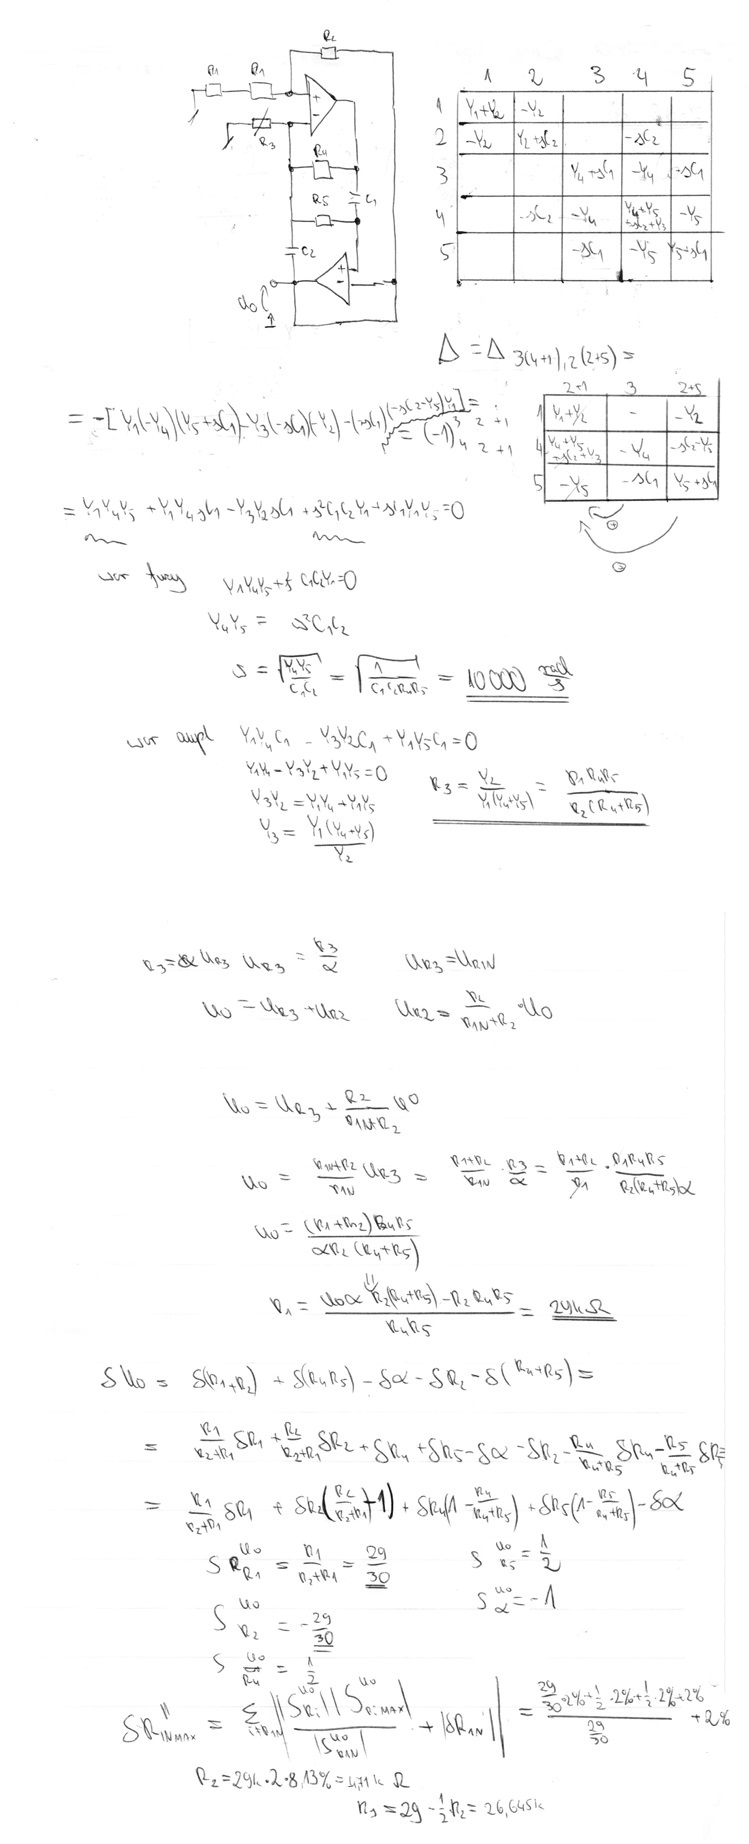 R2
R1 R1
+
-
R3
R4
R5
C1
C2
+
-
U0
1 2 3 4 5
1 Y1+Y2 -Y2
2 -Y2 Y2+sC2 -sC2
3 Y4+sC1 -Y4 -sC1
4 -sC2 -Y4 Y4+Y5+sC2+Y3 -Y5
5 -sC1 -Y5 Y5+sC1
Δ = Δ 3(4+1),2(2+5) =
2+1 3 2+5
1 Y1+Y2 - -Y2
4 Y4+Y5+sC2+Y3 -Y4 -sC2-Y5
5 -Y5 -sC1 Y5+sC1
= -[Y1(-Y4)(Y5+sC1)-Y3(-sC1)(-Y2)-(-sC1)(-sC2-Y5)Y1] =
= (-1)
= Y1Y4Y5 + Y1Y4sC1 - Y3Y2sC1 + s²C1C2Y1 + sC1Y1Y5 = 0
war fazy Y1Y4Y5 + s² C1C2Y1 = 0
Y4Y5 = s²C1C2
s = √(Y4Y5/C1C2) = √(1/C1C2R4R5) = 10000 rad/s
war ampl Y1Y4C1 - Y3Y2C1 + Y1Y5C1 = 0
Y1Y4 - Y3Y2 + Y1Y5 = 0
Y3Y2 = Y1Y4 + Y1Y5
Y3 = Y1(Y4+Y5)/Y2
R3 = Y2/Y1(Y4+Y5) = R1R4R5/R2(R4+R5)
R3 = α UR3 UR3 = R3/α UR3 = UR1N
U0 = UR3 + UR2 UR2 = R2/(R1N+R2) · U0
U0 = UR3 + R2/(R1N+R2) U0
U0 = (R1N+R2)/R1N UR3 = (R1+R2)/R1N · R3/α = (R1+R2)/R1 · R1R4R5/R2(R4+R5)α
U0 = (R1+R2)R4R5/αR2(R4+R5)
R1 = (U0αR2(R4+R5) - R2R4R5)/R4R5 = 29kΩ
δU0 = δ(R1+R2) + δ(R4R5) - δα - δR2 - δ(R4+R5) =
= R1/(R2+R1) δR1 + R2/(R2+R1) δR2 + δR4 + δR5 - δα - δR2 - R4/(R4+R5) δR4 - R5/(R4+R5) δR5 =
= R1/(R2+R1) δR1 + δR2(R2/(R2+R1) - 1) + δR4(1 - R4/(R4+R5)) + δR5(1 - R5/(R4+R5)) - δα
S U0 R1 = R1/(R2+R1) = 29/30 S U0 R5 = 1/2
S U0 R2 = -29/30 S U0 α = -1
S U0 R4 = 1/2
δR1NMAX = Σ i≠R1N || S U0 Ri || S U0 RiMAX | / | S U0 R1N | + |δR1N || = (29/30 · 2% + 1/2 · 2% + 1/2 · 2% + 2%)/(29/30) + 2%
R2 = 29k · 2 · 8,13% = 4,71k Ω
R1 = 29 - 1/2 R2 = 26,645k